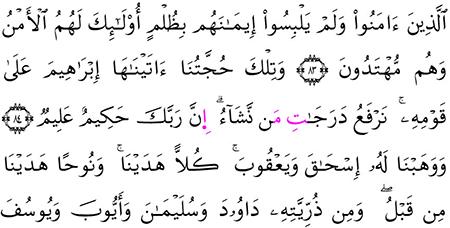 ٱلَّذِينَ ءَامَنُوا۟ وَلَمْ يَلْبِسُوٓا۟ إِيمَـٰنَهُم بِظُلْمٍ أُو۟لَـٰٓئِكَ لَهُمُ ٱلْأَمْنُ
وَهُم مُّهْتَدُونَ ﴿٨٣﴾ وَتِلْكَ حُجَّتُنَآ ءَاتَيْنَـٰهَآ إِبْرَٰهِيمَ عَلَىٰ
قَوْمِهِۦ ۚ نَرْفَعُ دَرَجَـٰتٍ مَّن نَّشَآءُ ۗ إِنَّ رَبَّكَ حَكِيمٌ عَلِيمٌ ﴿٨٤﴾
وَوَهَبْنَا لَهُۥٓ إِسْحَـٰقَ وَيَعْقُوبَ ۚ كُلًّا هَدَيْنَا ۚ وَنُوحًا هَدَيْنَا
مِن قَبْلُ ۖ وَمِن ذُرِّيَّتِهِۦ دَاوُۥدَ وَسُلَيْمَـٰنَ وَأَيُّوبَ وَيُوسُفَ